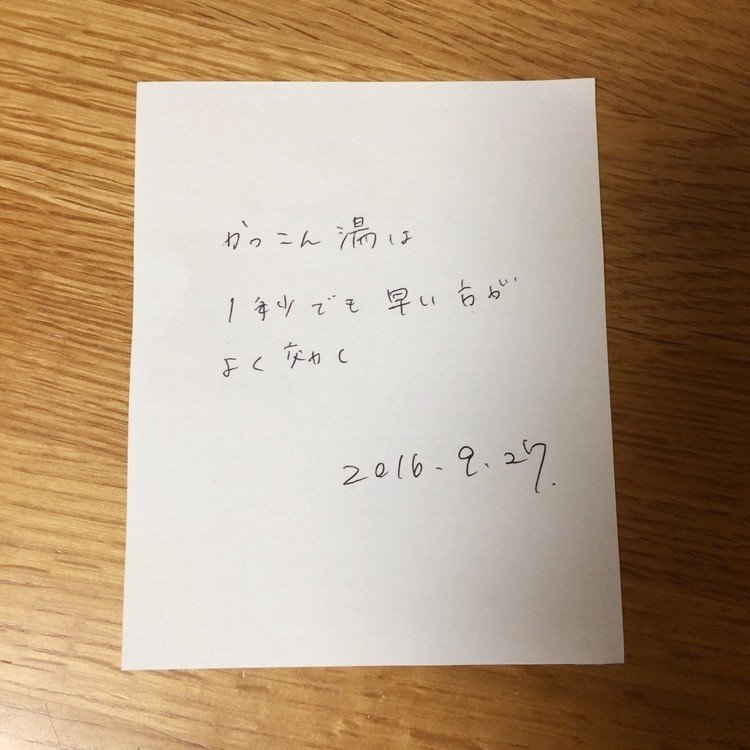 かっこん湯は
1秒でも早い方が
よく効く
2016.9.27.